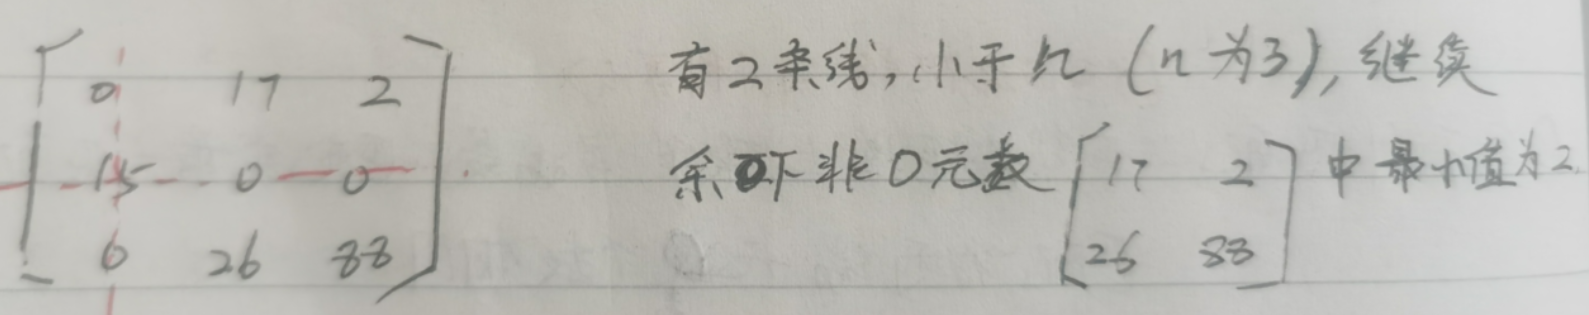 0 17 2
15 0 0
0 26 88
有2条线,小于n (n为3),继续
余下非0元数 [17 2 26 88] 中最小值为2